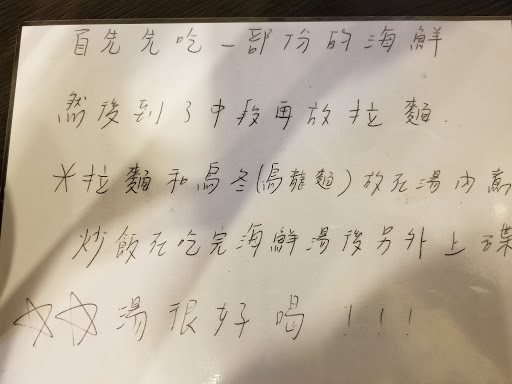 首先先吃一部份的海鮮
然後到了中段再放拉麵.
*拉麵和烏冬(烏龍麵)放在湯內煮
炒飯在吃完海鮮湯後另外上碟
☆☆湯很好喝!!!